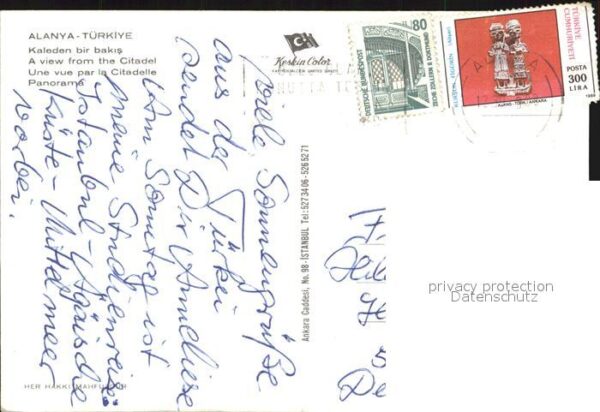 ALANYA - TÜRKİYE
Kaleden bir bakış
A view from the Citadel
Une vue par la Citadelle
Panorama
Keskin Color
80
DEUTSCHE BUNDESPOST
ZECHE ZOLLERN II DORTMUND
TÜRKİYE CUMHURİYETİ
POSTA
300
LİRA
Viele Sonnengrüße
aus der Türkei
sendet Dir Anneliese
Vom Sonntag ist
meine Studienreise:
Istanbul - Ägäische
Küste - Mittelmeer
vorbei.
Ankara Caddesi, No. 98 - İSTANBUL Tel: 527 34 06 - 526 52 71
HER HAKKI MAHFUZDUR
privacy protection
Datenschutz